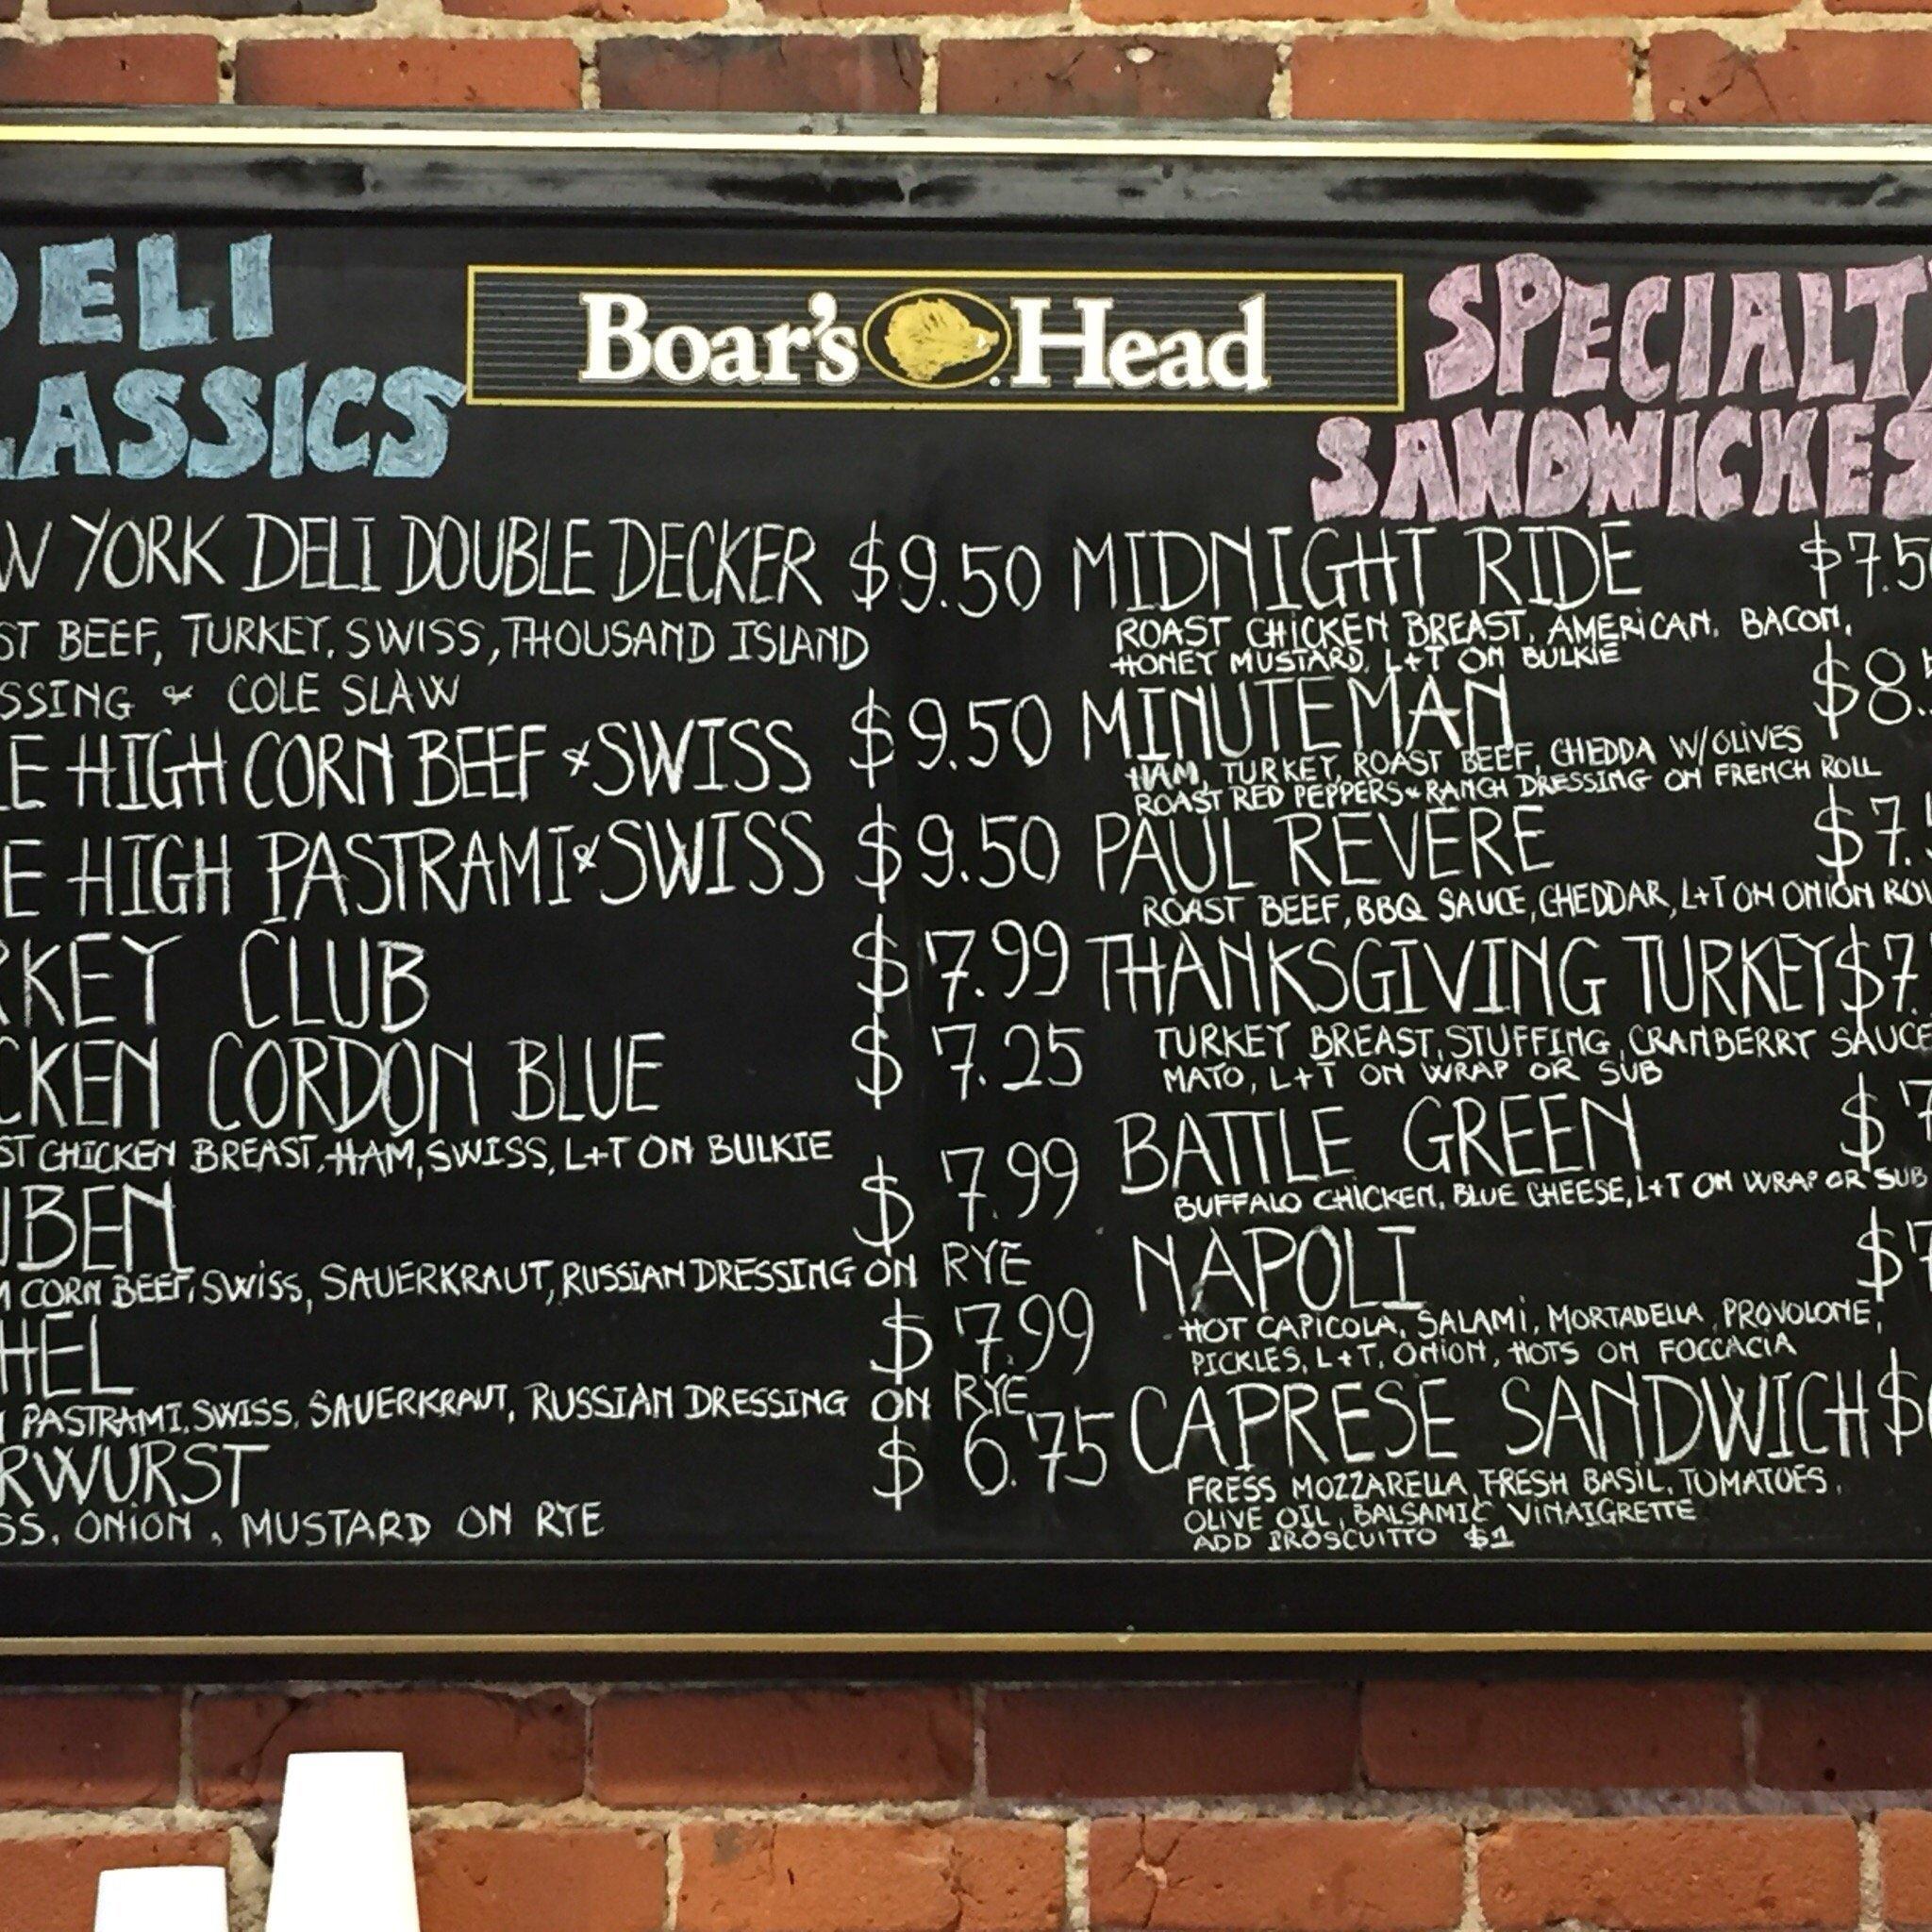 DELI
LASSICS
Boar's Head
SPECIALTY
SANDWICHES
W YORK DELI DOUBLE DECKER $9.50
ST BEEF, TURKEY, SWISS, THOUSAND ISLAND
SSING & COLE SLAW
LE HIGH CORN BEEF & SWISS $9.50
LE HIGH PASTRAMI & SWISS $9.50
RKEY CLUB $7.99
CKEN CORDON BLUE $7.25
ST CHICKEN BREAST, HAM, SWISS, L+T ON BULKIE
UBEN $7.99
M CORN BEEF, SWISS, SAUERKRAUT, RUSSIAN DRESSING ON RYE
HEL $7.99
M PASTRAMI, SWISS, SAUERKRAUT, RUSSIAN DRESSING ON RYE
RWURST $6.75
SS, ONION, MUSTARD ON RYE
MIDNIGHT RIDE $7.50
ROAST CHICKEN BREAST, AMERICAN, BACON,
HONEY MUSTARD, L+T ON BULKIE
MINUTEMAN $8.
HAM, TURKEY, ROAST BEEF, CHEDDA W/OLIVES
ROAST RED PEPPERS & RANCH DRESSING ON FRENCH ROLL
PAUL REVERE $7.
ROAST BEEF, BBQ SAUCE, CHEDDAR, L+T ON ONION RO
THANKSGIVING TURKEY $7.
TURKEY BREAST, STUFFING, CRANBERRY SAUCE
MAYO, L+T ON WRAP OR SUB
BATTLE GREEN $7
BUFFALO CHICKEN, BLUE CHEESE, L+T ON WRAP OR SUB
NAPOLI $7
HOT CAPICOLA, SALAMI, MORTADELLA, PROVOLONE,
PICKLES, L+T, ONION, HOTS ON FOCCACIA
CAPRESE SANDWICH $
FRESS MOZZARELLA, FRESH BASIL, TOMATOES,
OLIVE OIL, BALSAMIC VINAIGRETTE
ADD PROSCUITTO $1